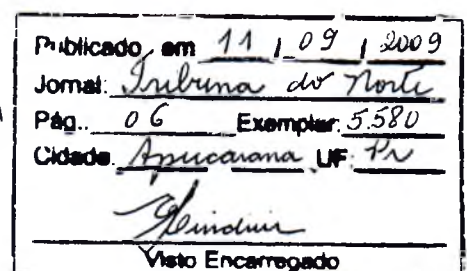 Publicado em 11 / 09 / 2009
Jornal: Tribuna do Norte
Pág.. 06 Exemplar: 5.580
Cidade: Apucarana UF: Pr
Visto Encarregado